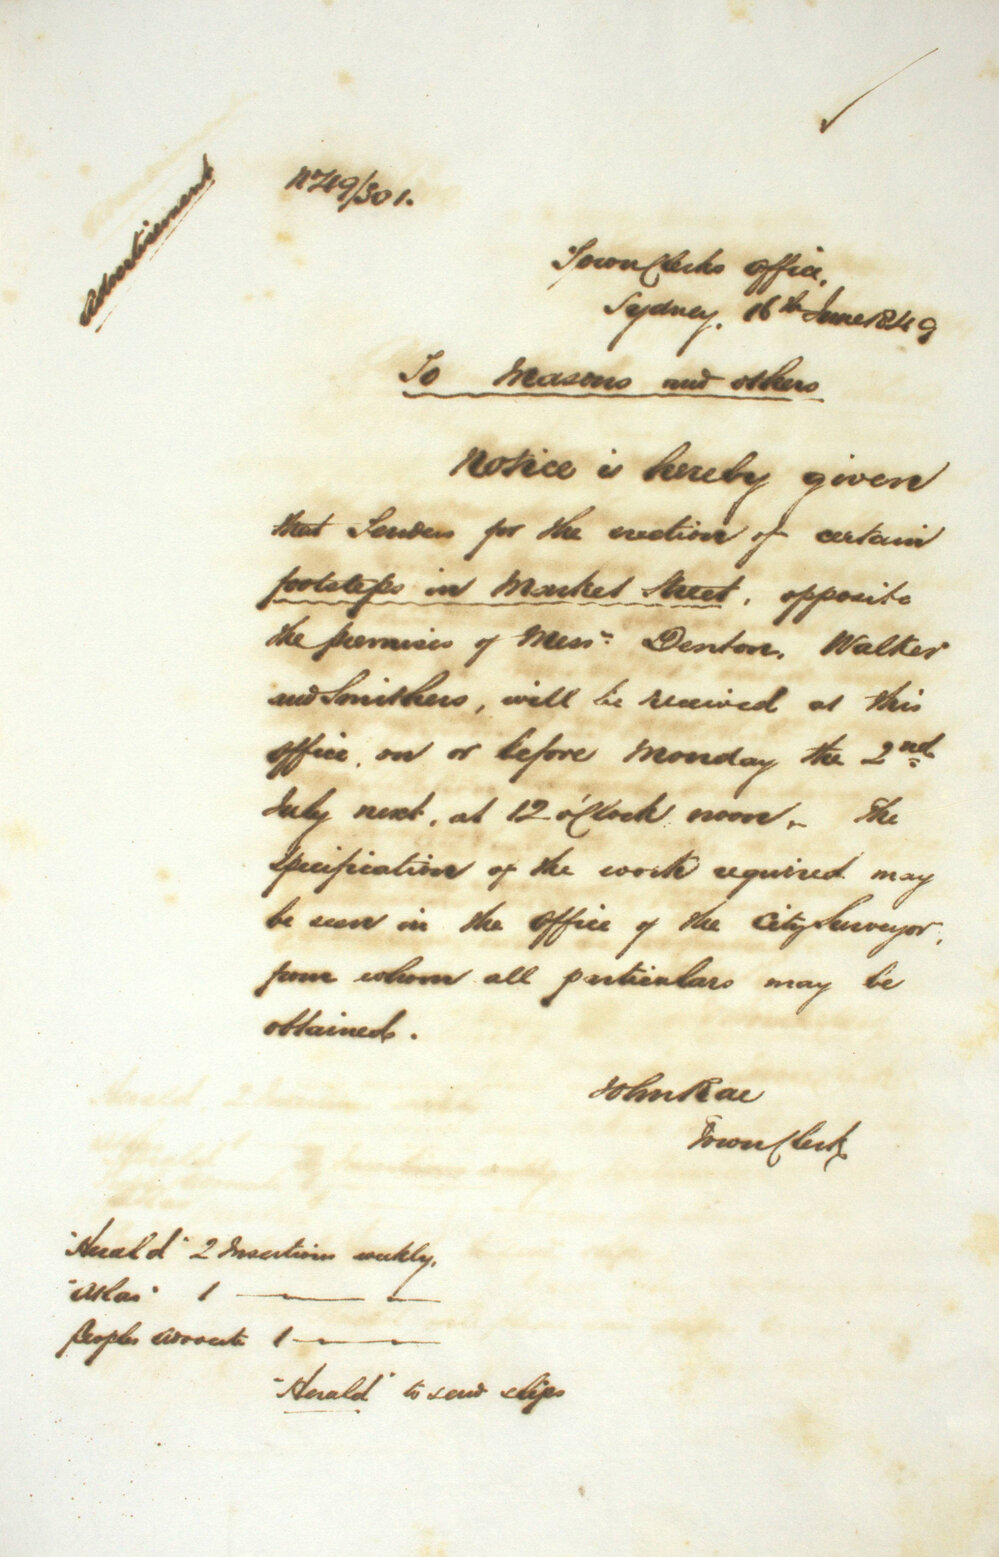 Advertisement
No 49/301.
Town Clerks Office,
Sydney, 16th June 1849
To Masons and others
Notice is hereby given
that Tenders for the erection of certain
footsteps in Market Street, opposite
the premises of Messrs. Denton, Walker
and Smithers, will be received at this
Office, on or before Monday the 2nd
July next, at 12 o'Clock noon. The
specification of the work required may
be seen in the Office of the City Surveyor,
from whom all particulars may be
obtained.
John Rae
Town Clerk
"Herald" 2 Insertions weekly.
"Atlas" 1 — —
Peoples Advocate 1 —
"Herald" to send slips